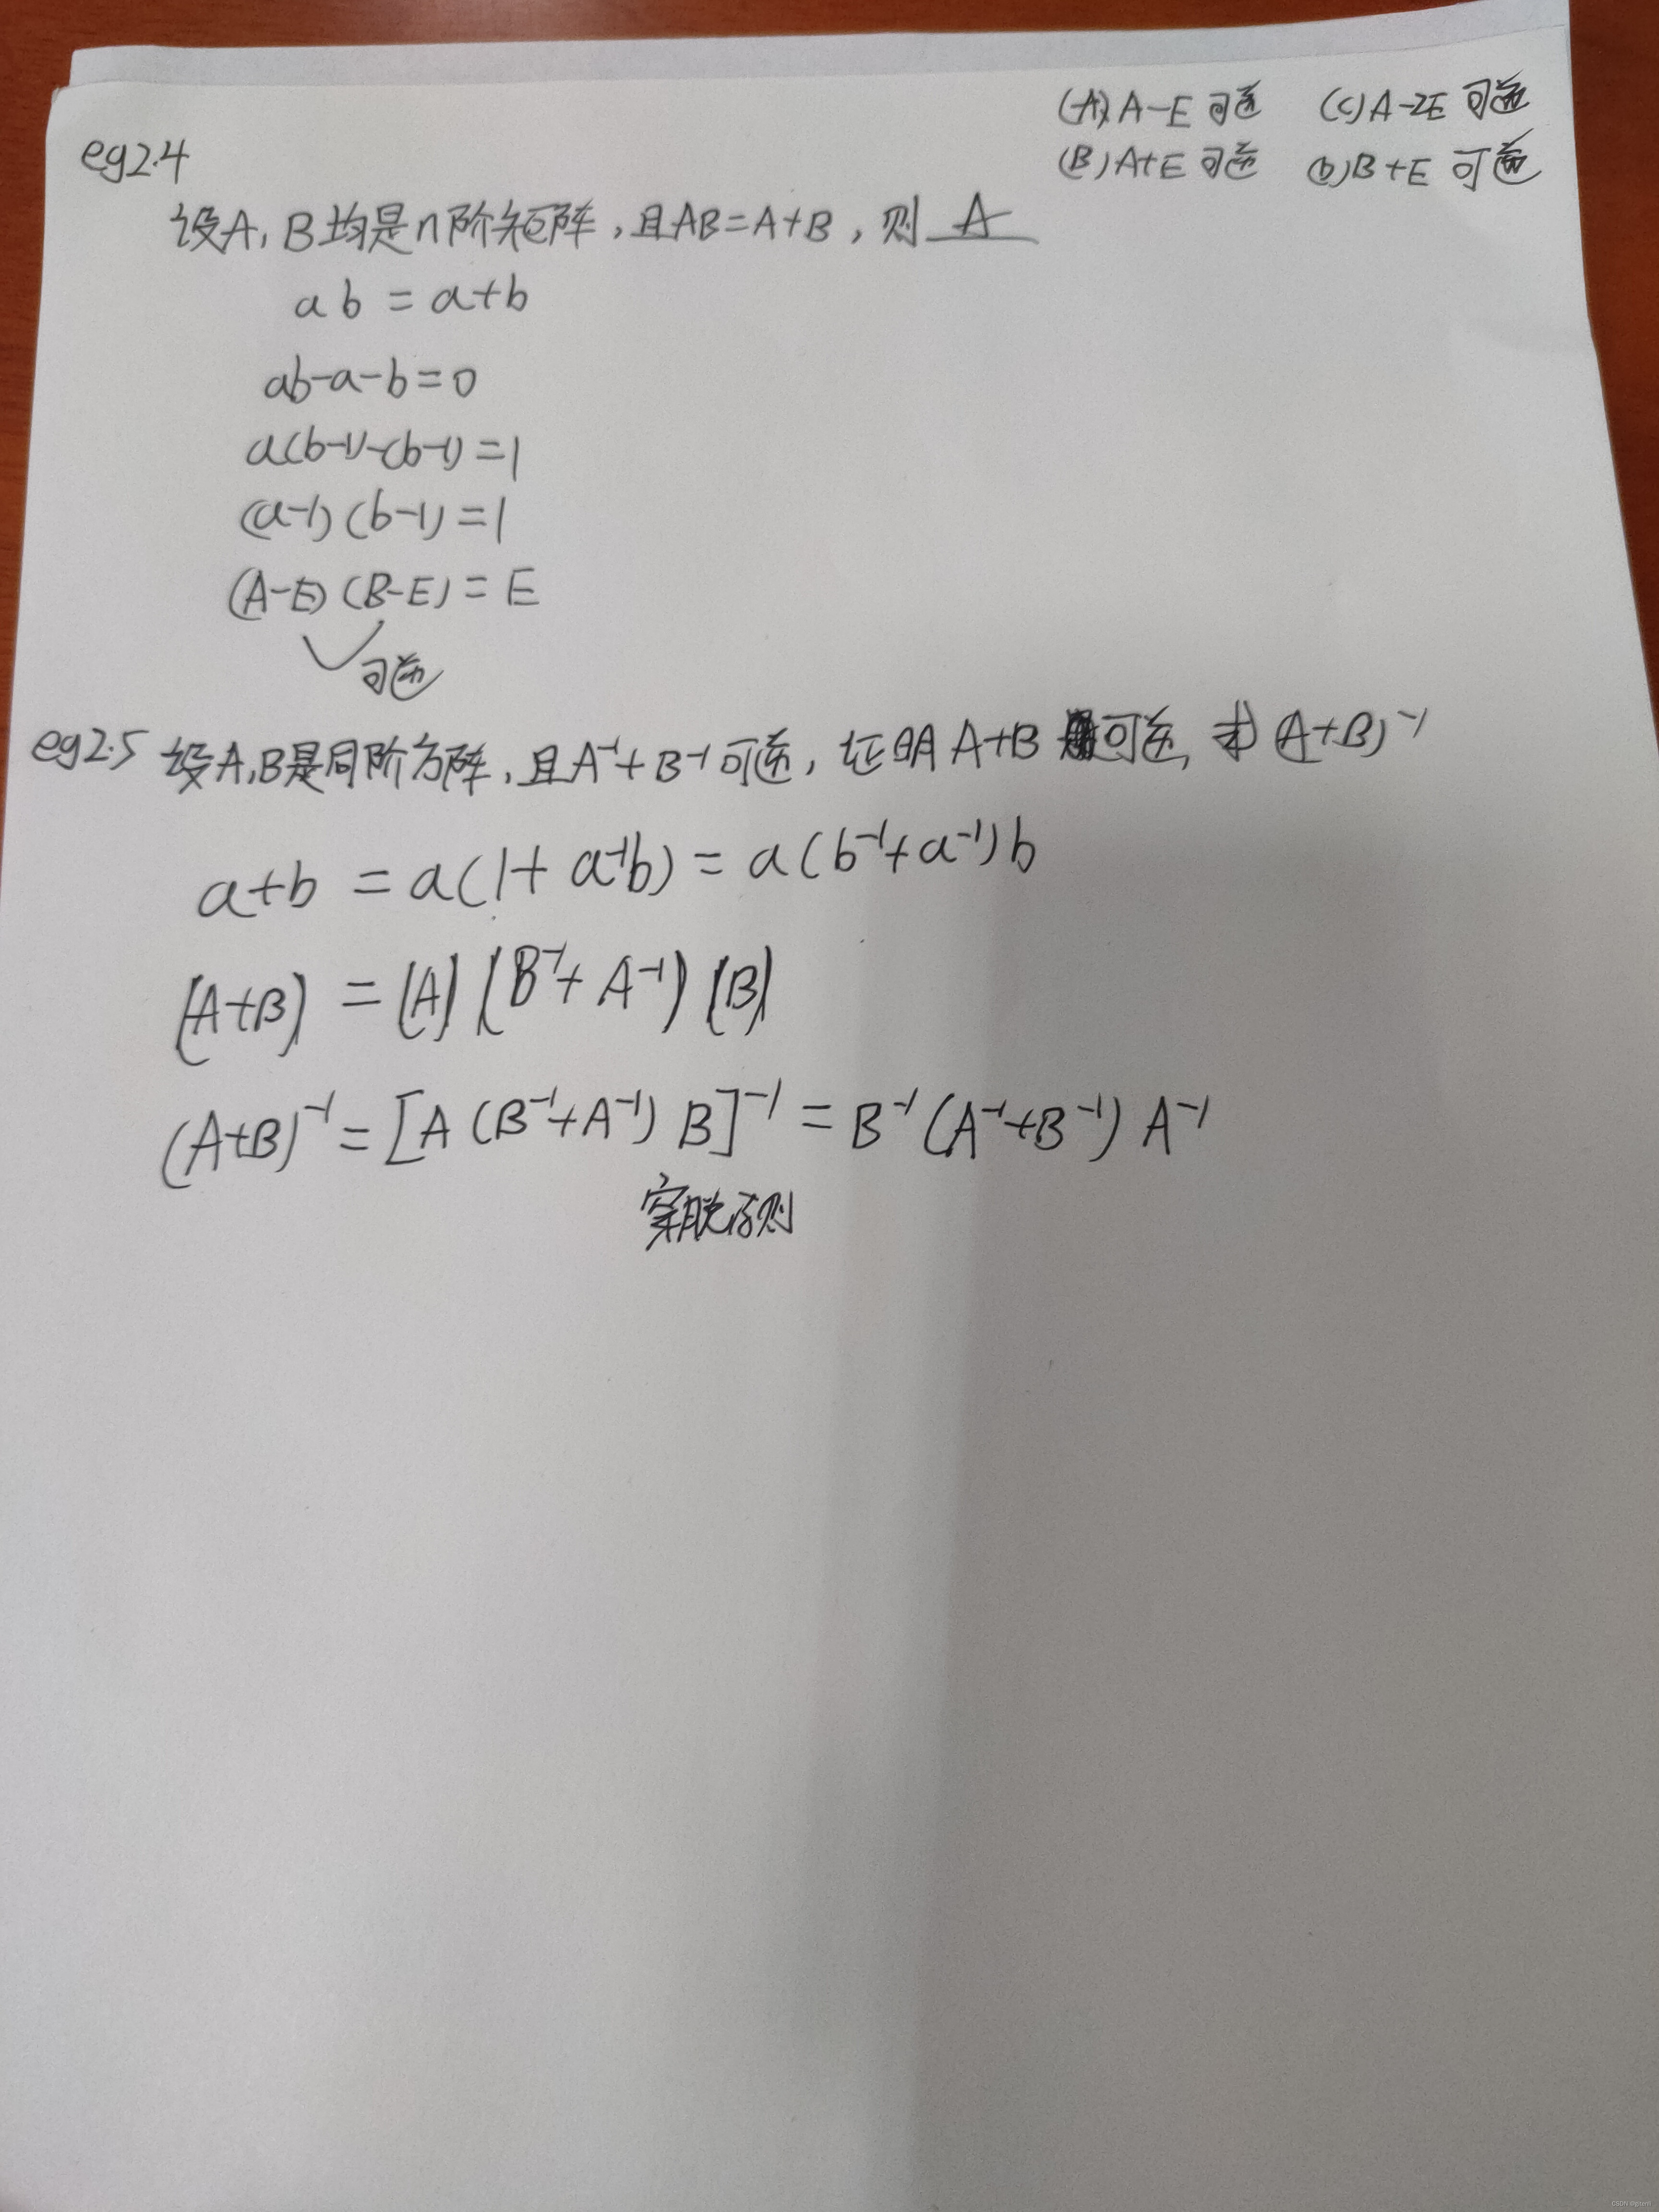 (A) A-E 可逆 (C) A-2E 可逆
(B) A+E 可逆 (D) B+E 可逆
eg2.4
设A,B均是n阶矩阵,且AB=A+B,则 A
ab = a+b
ab-a-b=0
a(b-1)-(b-1)=1
(a-1)(b-1)=1
(A-E)(B-E)=E
可逆
eg2.5 设A,B是同阶方阵,且A⁻¹+B⁻¹可逆,证明A+B可逆,求(A+B)⁻¹
a+b = a(1+a⁻¹b) = a(b⁻¹+a⁻¹)b
(A+B) = (A)(B⁻¹+A⁻¹)(B)
(A+B)⁻¹=[A(B⁻¹+A⁻¹)B]⁻¹=B⁻¹(A⁻¹+B⁻¹)A⁻¹
穿脱原则